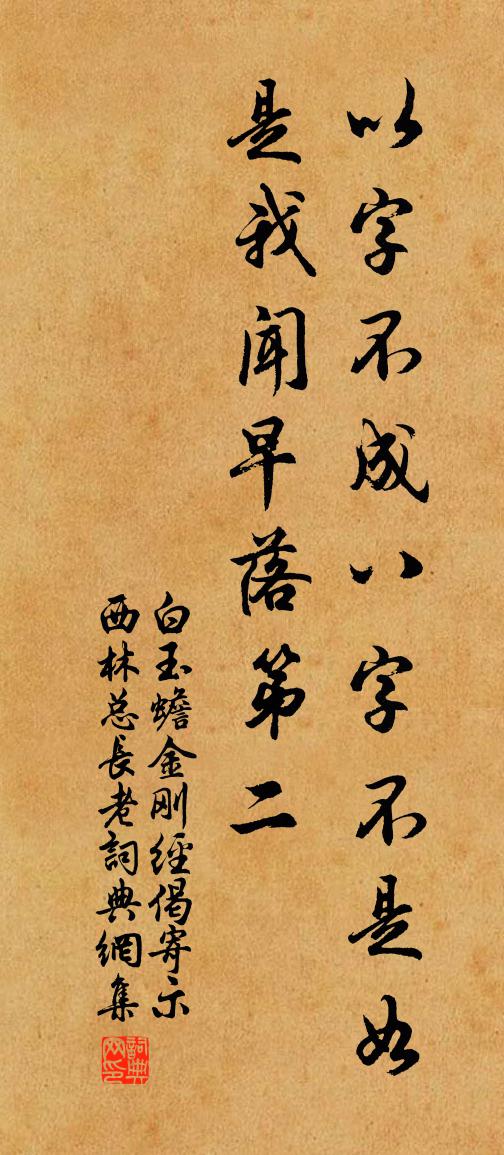 以字不成八字不是如
是我闻早落第二
白玉蟾金刚经偈寄示
西林总长老詞典網集
詞典网印